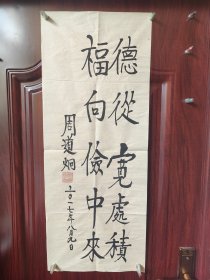 德從寬處積
福向儉中來
周道炯
二〇一七年八月九日